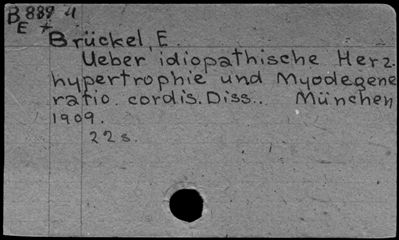 B 889 4
E *
Brückel, E.
Ueber idiopathische Herz-
hypertrophie und Myodegene
ratio. cordis. Diss.. München
1909.
22 s.